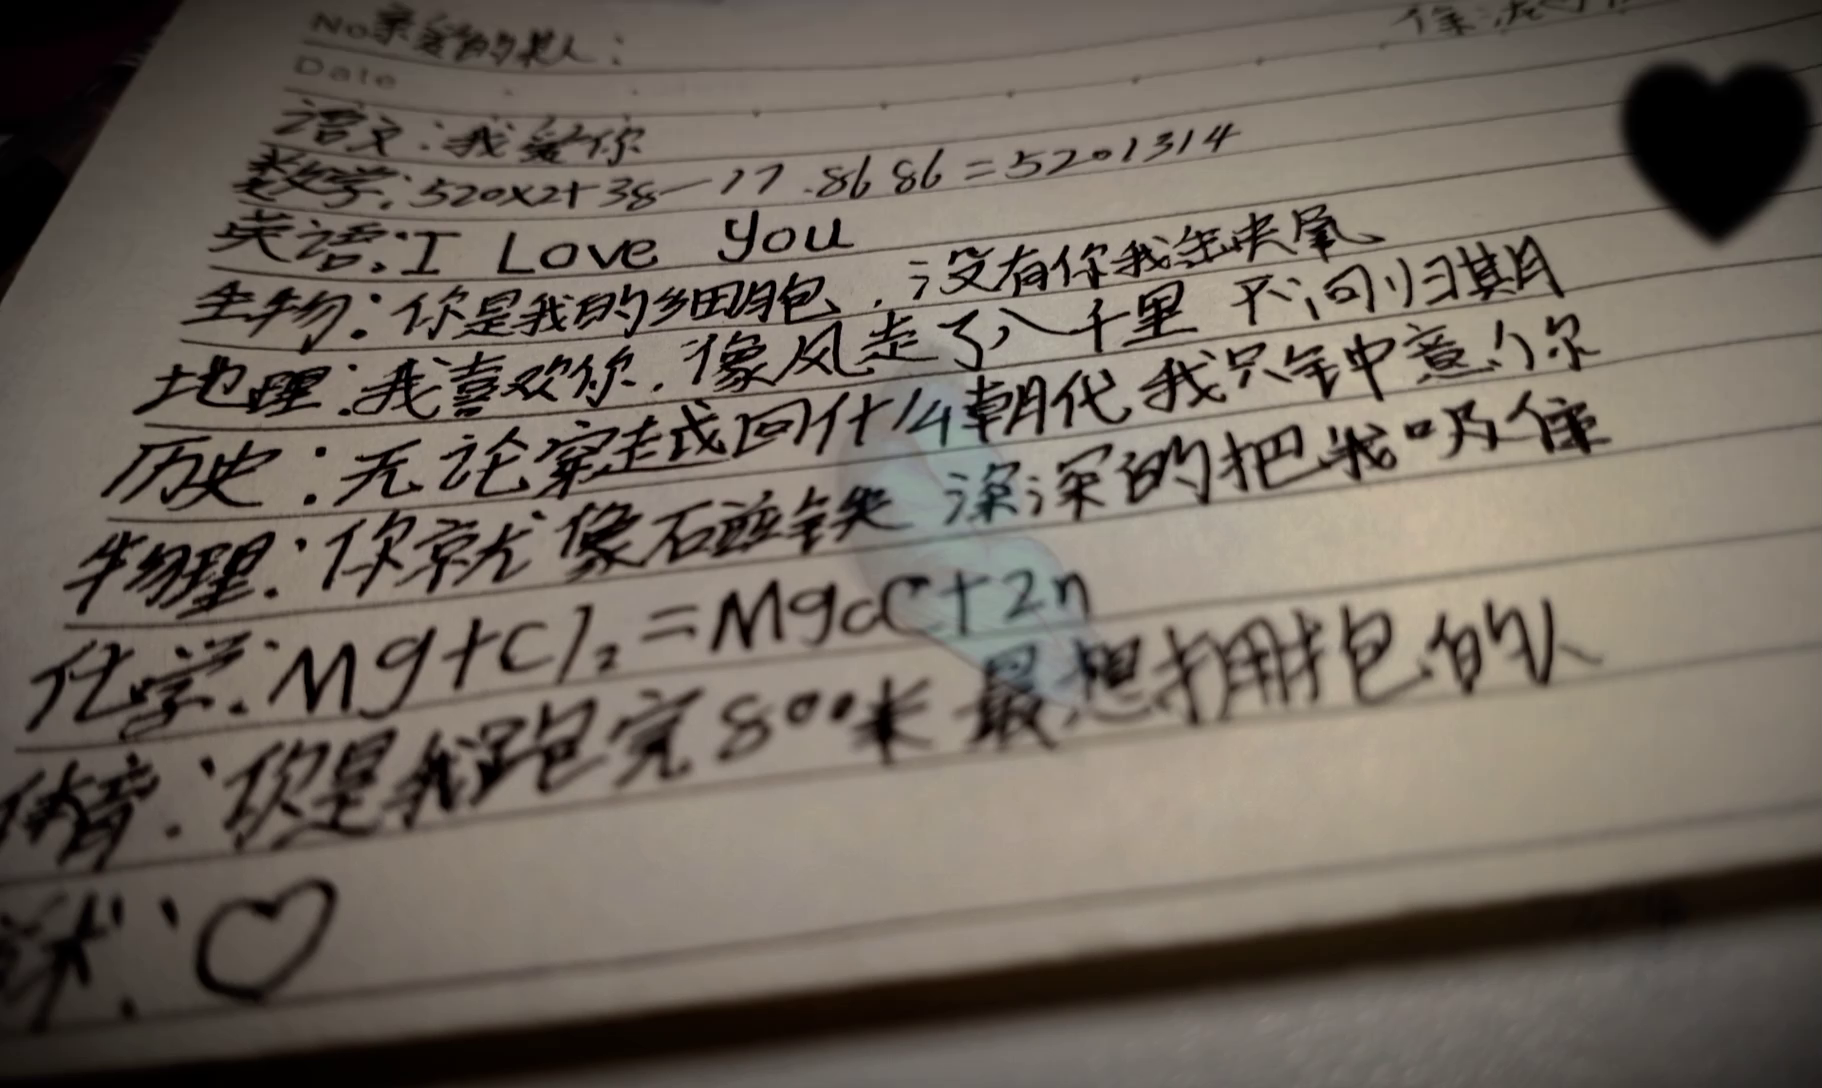 No亲爱的某人：
Date
语文：我爱你
数学：520x2+38-17.8686=5201314
英语：I Love you
生物：你是我的细胞，没有你我会缺氧
地理：我喜欢你，像风走了八千里 不问归期
历史：无论穿越回什么朝代 我只会钟意你
物理：你就像石磁铁 深深的把我吸住
化学：Mg+Cl₂=MgC+2n
体育：你是我跑完800米 最想拥抱的人
术：♡